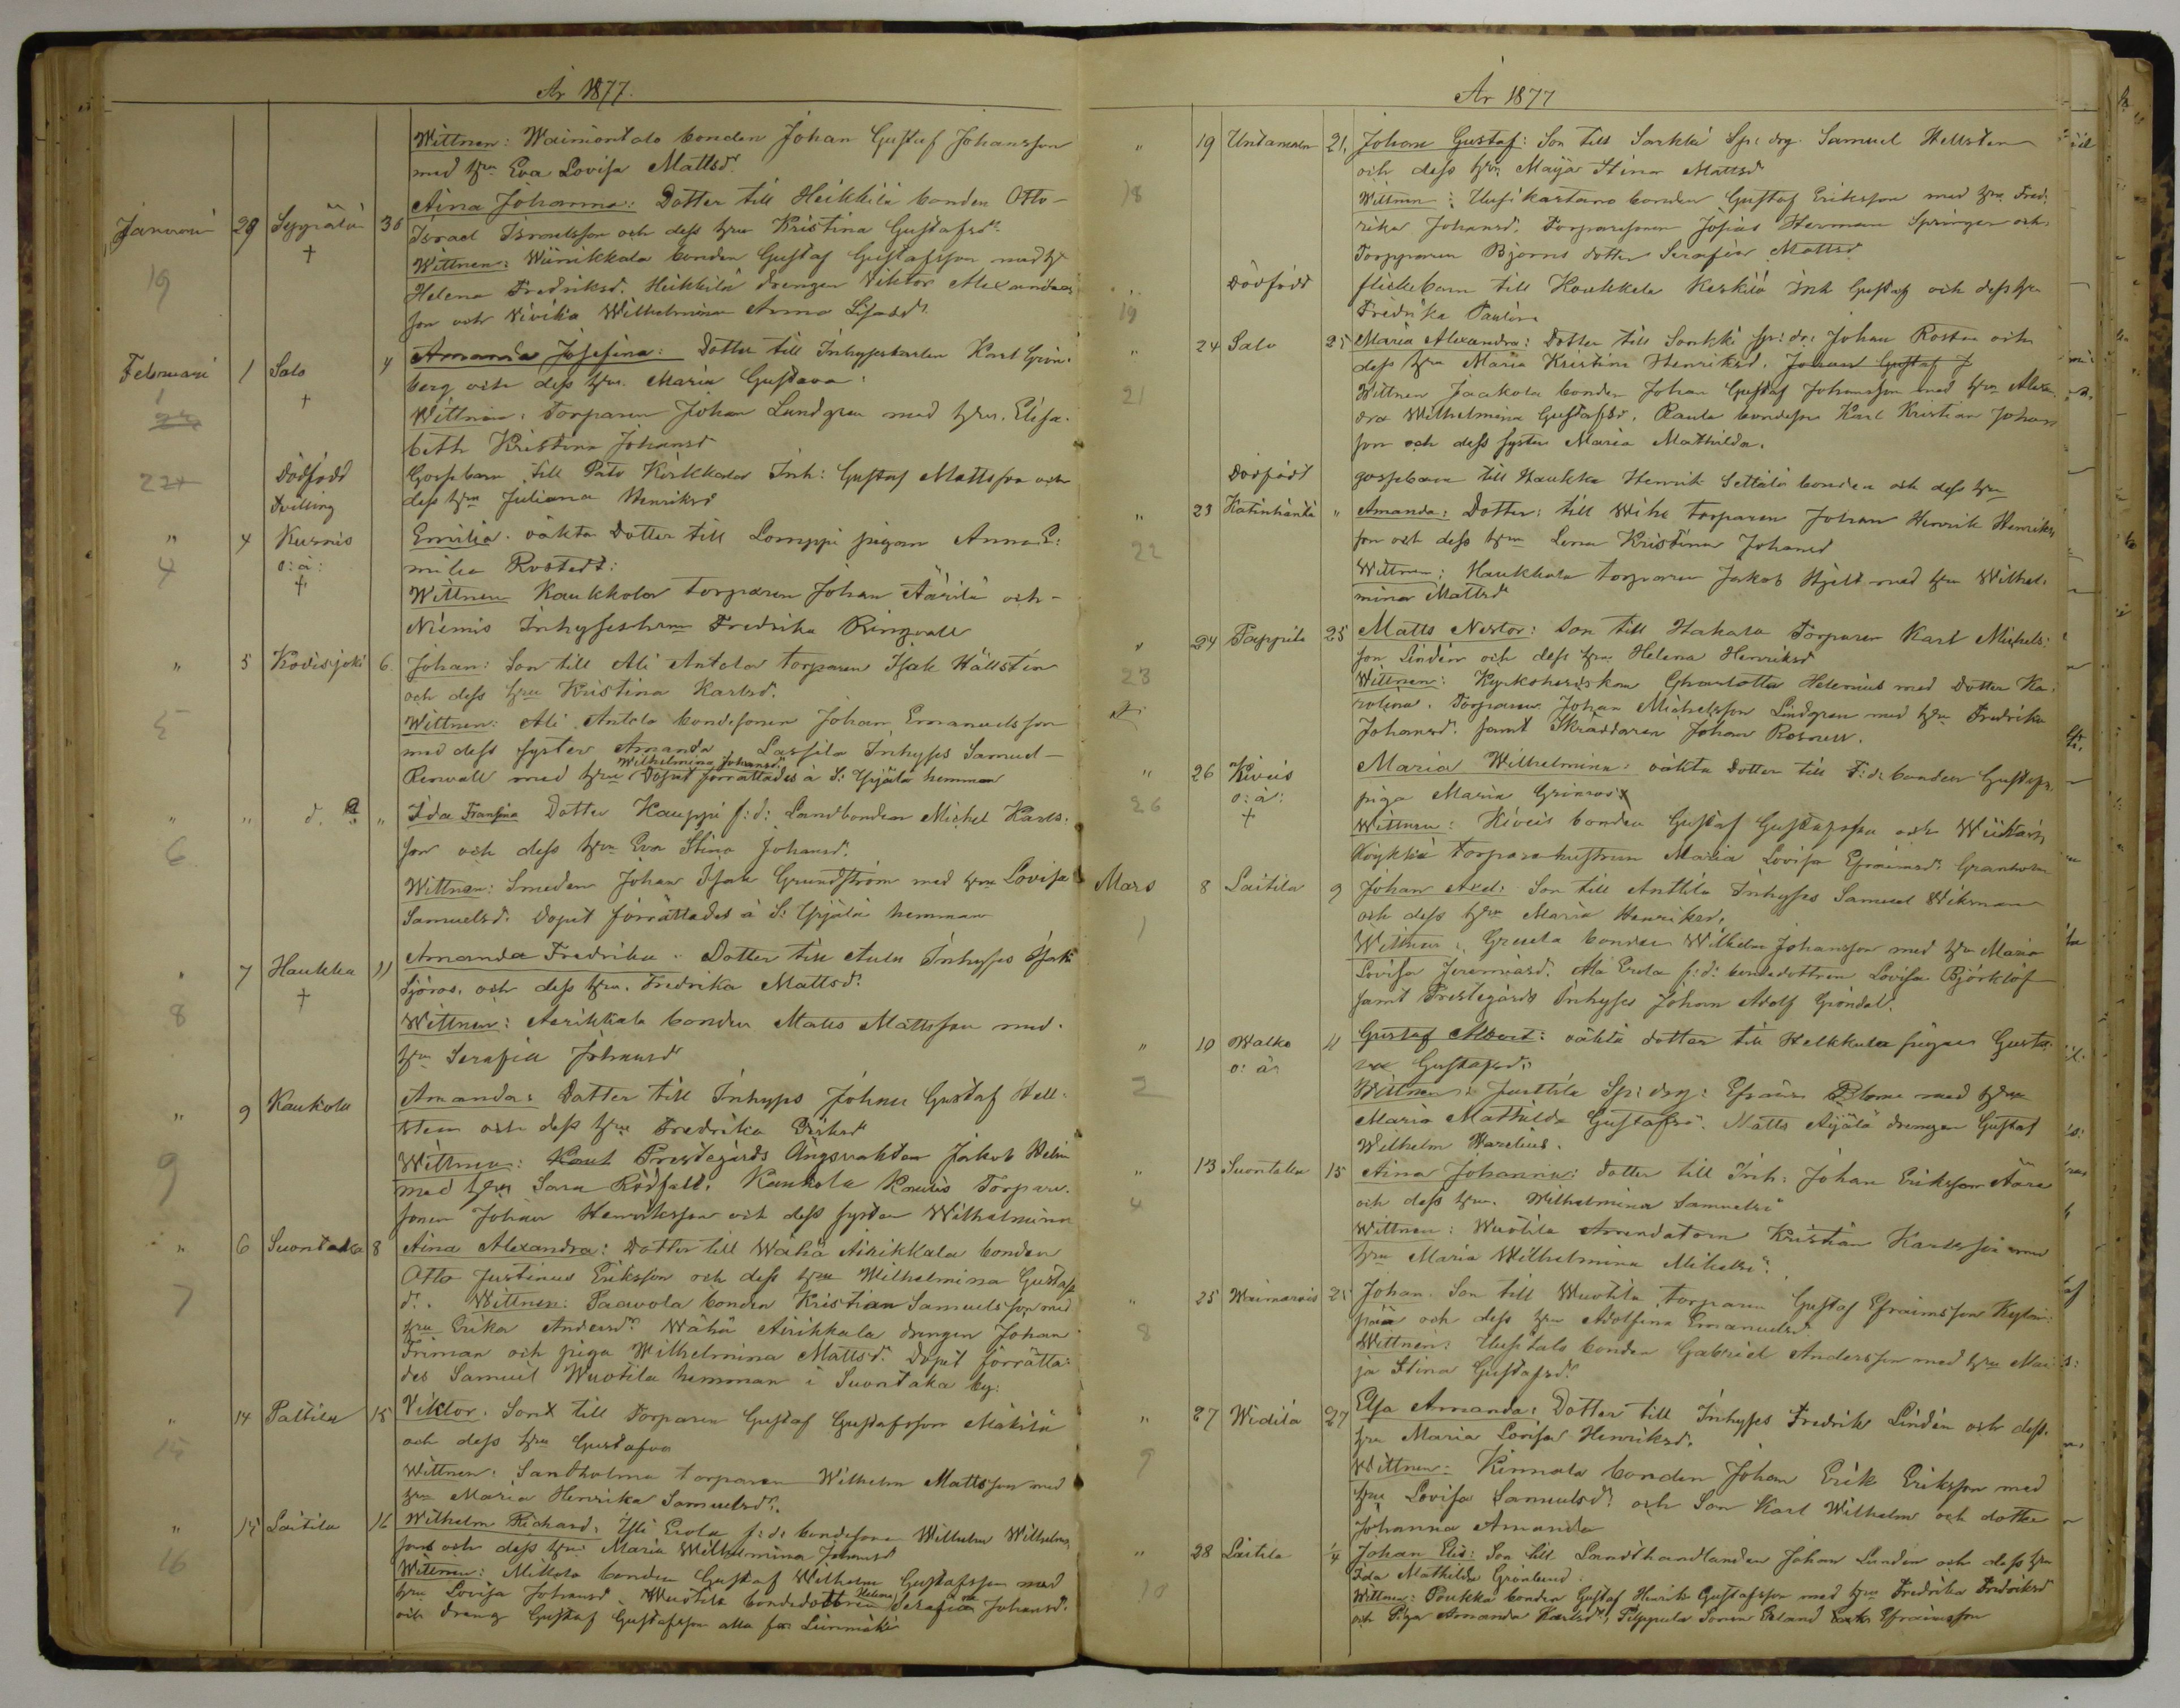 År 1877.
Wittnen: Waimontalo bonden Johan Gustaf Johansson
med hru Eva Lovisa Mattsdr
Januari 29 Seppälä † 30 Aina Johanna: Dotter till Heikkilä bonden Otto
Israel Israelsson och dess hru Kristina Gustafsdr
19 Wittnen: Wiinikkala bonden Gustaf Gustafsson med hr
Helena Fredriksd. Heikkilä drengen Viktor Alexanders
son och Vivika Wilhelmina Anna
Februari 1 Salo † 4 Amanda Josefina: Dotter till Inhyseskarlen Karl Grön-
berg och dess hru. Maria Gustava:
Wittnen: Torparen Johan Lundgren med hru. Elisa-
beth Kristina Johansd
22 Dödfödd Tvilling Gossebarn till Pato Kirkkala Inh: Gustaf Mattsson och
dess hru Juliana Henriksd
" 4 Kurnis o: ä: † Emilia. oäkta Dotter till Lomppi pigan Anna E:
4 milia Rostedt:
Wittnen Kaukkola torparen Johan Äärilä och
Niemis Inhyseshru Fredrika Ringvall
" 5 Kovisjoki 6 Johan: Son till Ali Antola torparen Isak Hällstén
och dess hru Kristina Karlsd.
5 Wittnen: Ali Antola bondesonen Johan Emanuelsson
med dess syster Amanda, Lassila Inhyses Samuel
Wilhelmina Johansd.
Renvall med hru Döput förrättades å S: Yrjälä hemman
" " d. o " Ida Fransina Dotter Kauppi f: d: Landbonden Michel Karls-
6 son och dess hru Eva Stina Johansd.
Wittnen: Smeden Johan Isak Grundström med hru Lovisa
Samuelsd. Doput förrättades å S: Yrjälä hemman
" 7 Haukka † 11 Amanda Fredrika. Dotter till Aulu Inhyses Isak
Sjöros. och dess hru. Fredrika Mattsd:
8 Wittnen: Aerikkala bonden Matts Mattsson med
hru Serafia Johansdr
" 9 Kaukola Amanda: Dotter till Inhyses Johan Gustaf Hell-
sten och dess hru Fredrika Eriksd
9 Wittnen: Kauk Prestegårds Ängsvakten Jakob Helin
med hru Sara Rödfalk. Kaukola Kauris Torpare-
sonen Johan Henriksson och dess syster Wilhelmina
" 6 Suontaka 8 Aina Alexandra: Dotter till Wähä Airikkala bonden
Otto Justinus Eriksson och dess hru Wilhelmina Gustafs
7 dr. Wittnen: Paavola bonden Kristian Samuelsson med
hru Erika Andersd. Wähä Airikkala drengen Johan
Friman och piga Wilhelmina Mattsd. Doput förrätta-
des Samuel Wuotila hemman i Suontaka by.
" 14 Paltila 15 Viktor. Son till Torparen Gustaf Gustafsson Mäkilä
15 och dess hru Gustafva
Wittnen: Santholma torparen Wilhelm Mattsson med
hru Maria Henrika Samuelsdr.
" 15 Laitila 16 Wilhelm Richard: Yli Erola f: d: bondesonen Wilhelm Wilhelms
son och dess hru Maria Wilhelmina Johansd
16 Wittnen: Mikola bonden Gustaf Wilhelm Gustafsson med
Helena
hru Lovisa Johansd. Wuotila bondedottren Serafia Johansd.
och dreng Gustaf Gustafsson alla från Leinmäki
År 1877
" 19 Untamala 21. Johan Gustaf: Son till Sarkki Sp: drg. Samuel Hellsten
och dess hru Maija Stina Mattsd
18 Wittnen: Uusikartano bonden Gustaf Eriksson med hru Fred-
rika Johansd. Torparesonen Josias Herman Springer och
Torparen Björns dotter Serafia Mattsd
Dödfödd flickebarn till Kaukkola Keskilä Inh Gustaf och dess hru
19 Fredrika Paulina
" 24 Salo 25 Maria Alexandra: Dotter till Sarkki sp: dr: Johan Rosten och
dess hru Maria Kristina Henriksd. Johan Gustaf J
21 Wittnen Jaakola bonden Johan Gustaf Johansson med hru Alexa-
dra Wilhelmina Gustafsd. Raula bondeson Karl Kristian Johans
son och dess syster Maria Mathilda.
Dödfödd gossebarn till Haukka Henrik Settälä bonden och dess hru
" 23 Katinhäntä " Amanda: Dotter: till Wihe torparen Johan Henrik Henriks
22 son och dess hru Lena Kristina Johansd
Wittnen: Haukkala torparen Jakob Hjelt med hru Wilhel-
mina Mattsd
" 24 Pappila 25 Matts Nestor: Son till Hakala Torparen Karl Michels-
son Lindén och dess hru Helena Henriksd
23 Wittnen: Kyrkoherdskan Charlotta Helenius med Dotter Ka-
rolina. Torparen Johan Michelsson Lindgren med hru Fredrika
Johansd. samt Skräddaren Johan Rosnell.
" 26 Kiveis o: ä: † Maria Wilhelmina: oäkta Dotter till F: d: bonden Gustafs.
26 piga Maria Grönros
Wittnen: Kiveis bonden Gustaf Gustafsson och
torparehustrun Maria Lovisa Efraimsd: Granholm
Mars 8 Laitila 9 Johan Axel: Son till Anttila Inhyses Samuel Wikman
och dess hru Maria Henriksd.
1 Wittnen: Greula bonden Wilhelm Johansson med hru Maria
Lovisa Jeremiasd. Ala Erola f: d: bondedottren Lovisa Björklöf
samt Prestegårds Inhyses Johan Adolf Gröndal.
" 10 Walko o: ä: 11 Gustaf Albert: oäkta dotter till Heikkula pigan Gusta
va Gustafsd:
2 Wittnen: Junttila Sp: drg: Efraim Blom med hru
Maria Mathilda Gustafsd. Matts Äijälä drengen Gustaf
Wilhelm Warelius.
" 13 Suontaka 15 Aina Johanna: dotter till Inh: Johan Eriksson Ääri
4 och dess hru. Wilhelmina Samuelsd
Wittnen: Wuotila Arrendatorn Kristian Karlsson med
hru Maria Wilhelmina Mikelsd.
" 25 Waimarois 25 Johan. Son till Wuotila torparen Gustaf Efraimsson Kylän-
pää och dess hru Adolfina Emanuelsd.
8 Wittnen: Uusitalo bonden Gabriel Andersson med hru Mai
ja Stina Gustafsd.
" 27 Widilä 27 Elsa Amanda: Dotter till Inhyses Fredrik Lindén och dess
hru Maria Lovisa Henriksd.
9 Wittnen: Kinnala bonden Johan Erik Eriksson med
hru Lovisa Samuelsd: och Son Karl Wilhelm och dotter
Johanna Amanda
" 28 Laitila 1/4 Johan Elis: Son till Landthandlanden Johan Lunden och dess hru
Ida Mathilda Grönlund
10 Wittnen: Poukka bonden Gustaf Henrik Gustafsson med hru Fredrika Fredriksd
och Piga Amanda Karlsd, Pilppula Sonen Erland Efraimsson